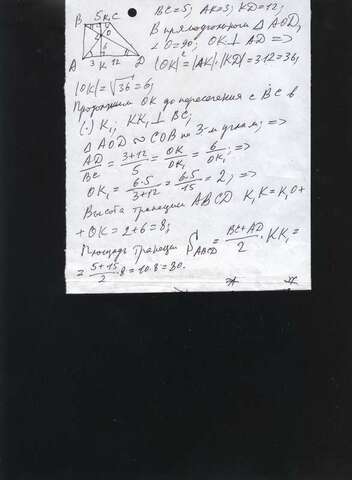 B 5 K₁ C
2 O
6
A 3 K 12 D
BC=5; AK=3; KD=12;
В прямоугольном Δ AOD,
∠O=90°, OK⊥AD =>
|OK|²=|AK|·|KD|=3·12=36,
|OK|=√36=6;
Продолжим OK до пересечения с BC в
(·) K₁; KK₁⊥BC;
Δ AOD ∾ COB по 3-м углам; =>
AD/BC = (3+12)/5 = OK/OK₁ = 6/OK₁; =>
OK₁ = (6·5)/(3+12) = (6·5)/15 = 2; =>
Высота трапеции ABCD K₁K=K₁O+
+OK=2+6=8;
Площадь трапеции S_ABCD = (BC+AD)/2 · KK₁=
= (5+15)/2 ·8=10·8=80.